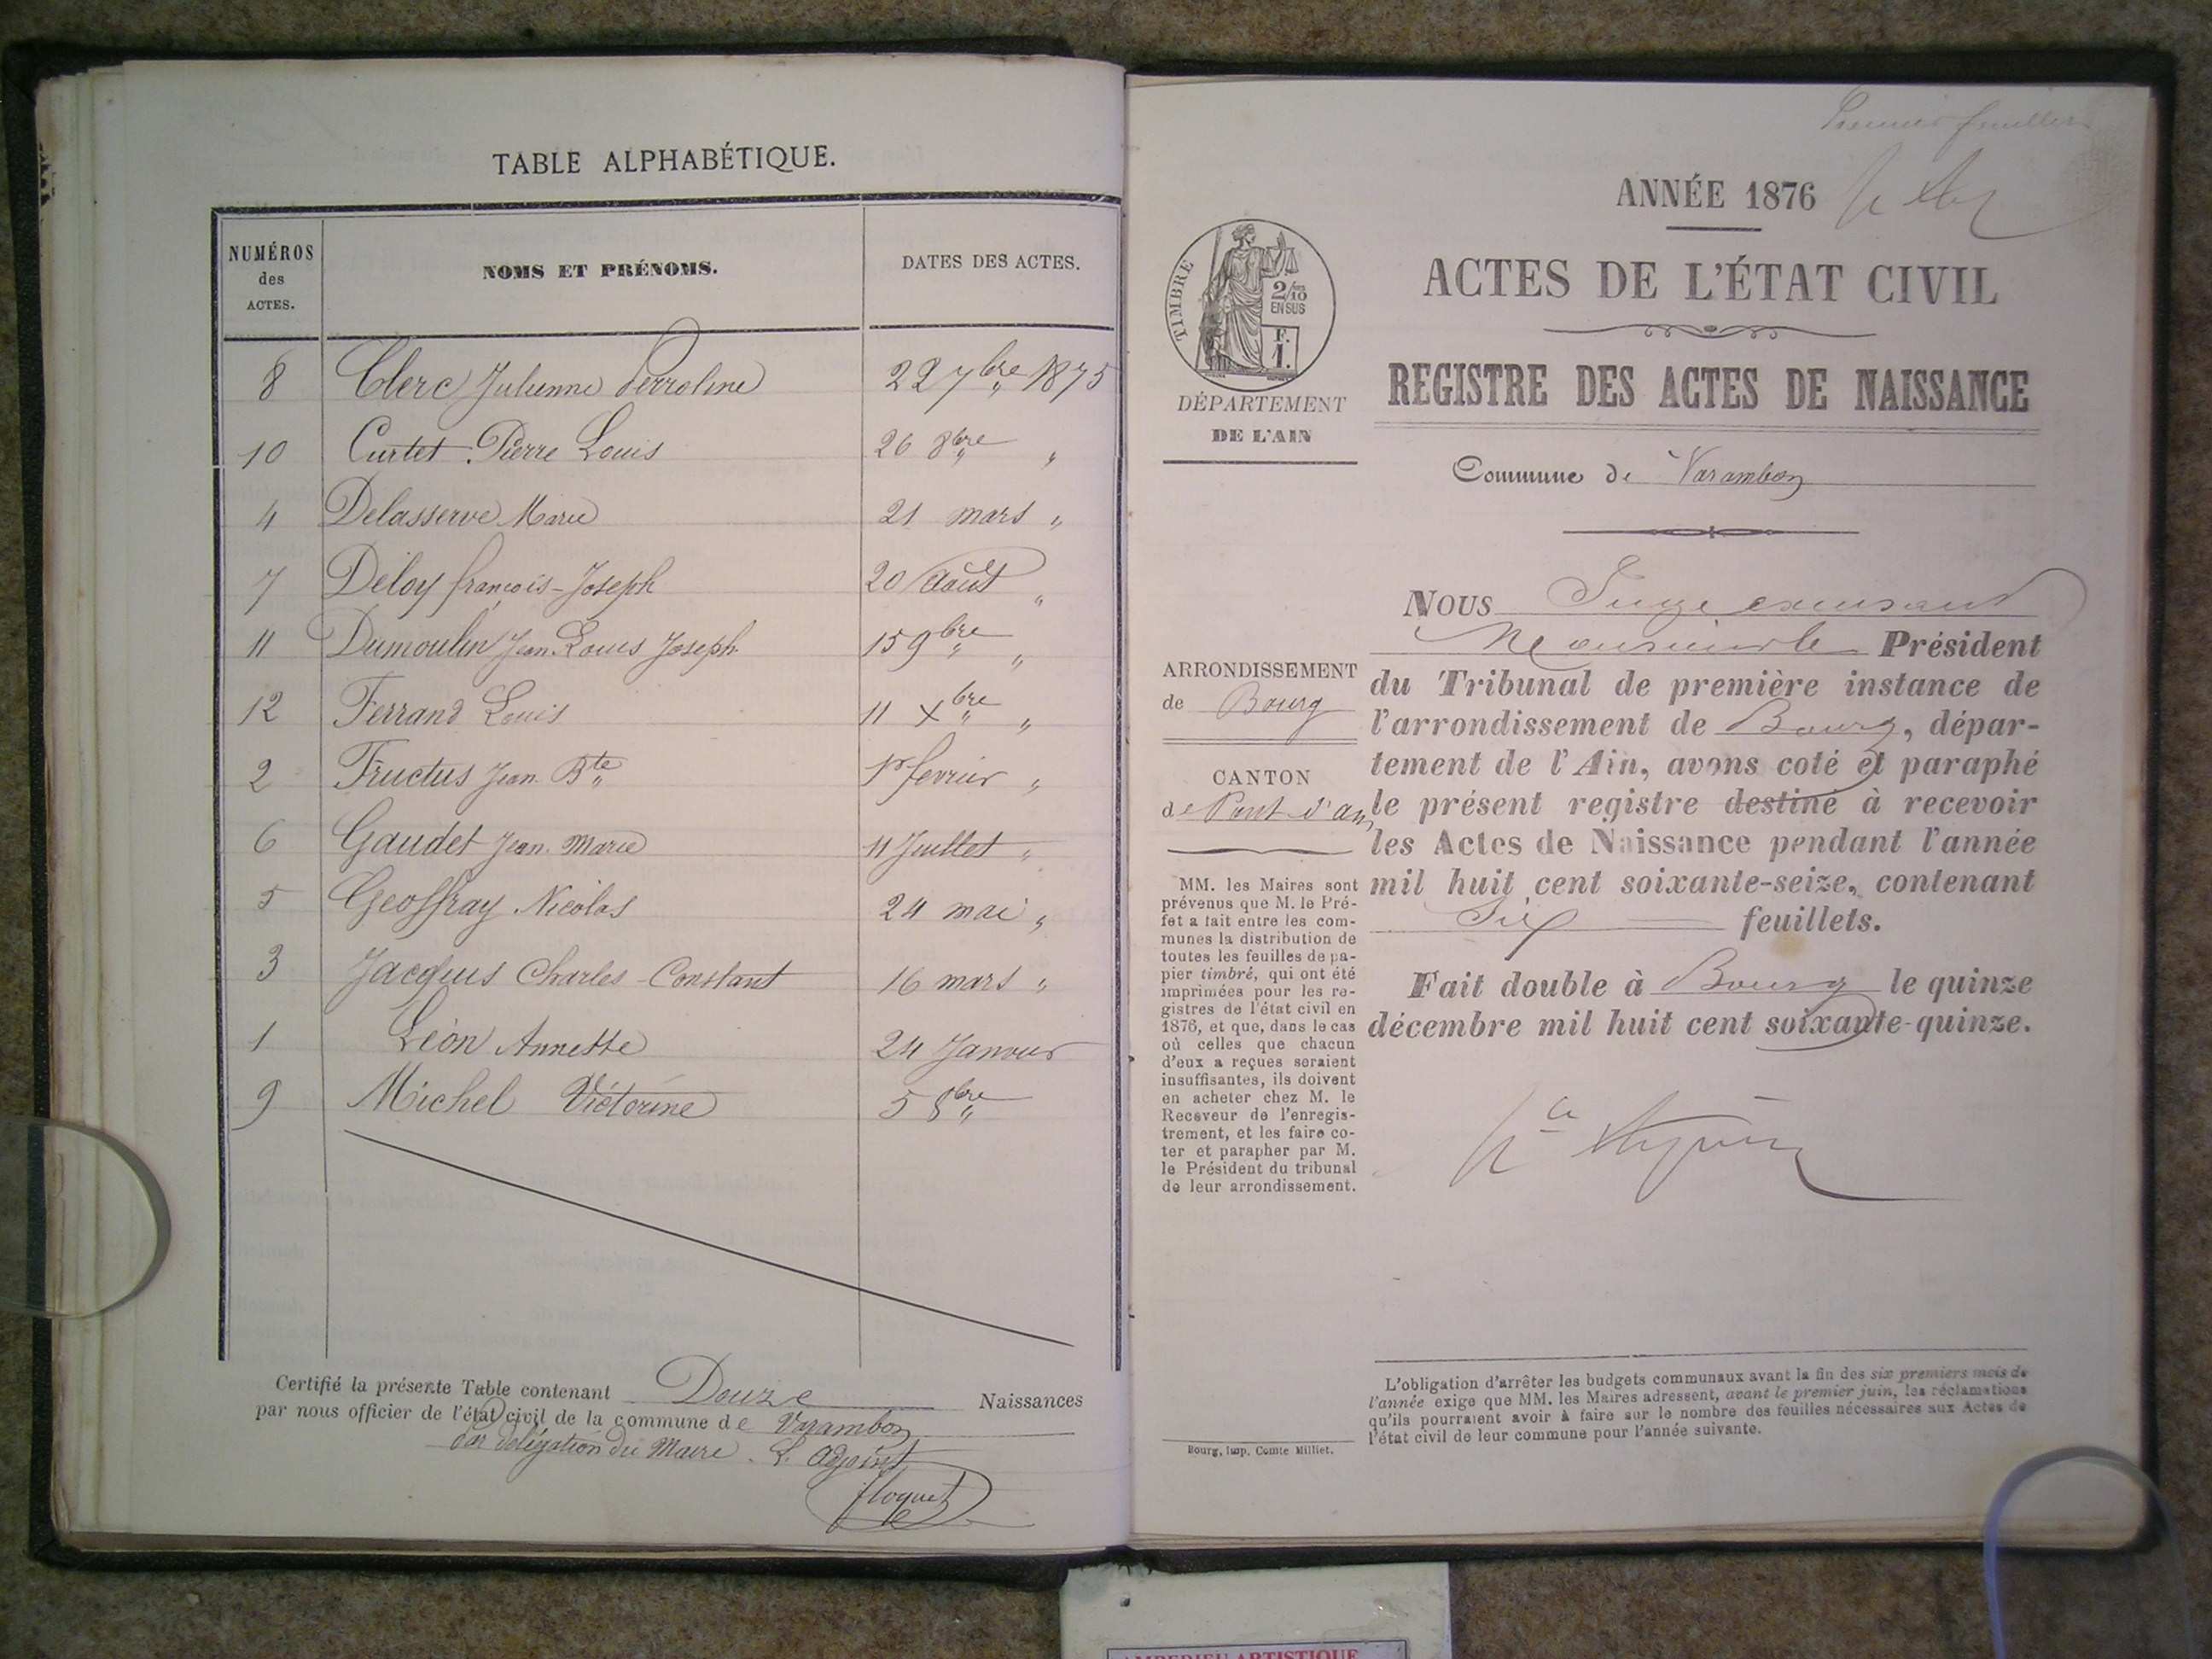 TABLE ALPHABÉTIQUE.
NUMÉROS des ACTES.
NOMS ET PRÉNOMS.
DATES DES ACTES.
8 Clerc Julienne Perroline 22 7bre 1875
10 Curtet Pierre Louis 26 8bre "
4 Delasserve Marie 21 mars "
7 Déloy françois-Joseph 20 Août "
11 Dumoulin Jean Louis Joseph 15 9bre "
12 Ferrand Louis 11 Xbre "
2 Fructus Jean Bte 1er fevrier "
6 Gaudet Jean Marie 11 Juillet "
5 Geoffray Nicolas 24 mai "
3 Jacquus Charles-Constant 16 mars "
1 Léon Annette 24 Janvier
9 Michel Victorine 5 8bre "
Certifié la présente Table contenant Douze Naissances
par nous officier de l'état civil de la commune de Varambon
Par délégation du Maire. L. Adjoint
floquet
Premier feuillet
ANNÉE 1876
ACTES DE L'ÉTAT CIVIL
REGISTRE DES ACTES DE NAISSANCE
Commune de Varambon
TIMBRE
2/10
EN SUS
F.
1.
DÉPARTEMENT
DE L'AIN
ARRONDISSEMENT
de Bourg
CANTON
de Pont d'ain
MM. les Maires sont
prévenus que M. le Pré-
fet a fait entre les com-
munes la distribution de
toutes les feuilles de pa-
pier timbré, qui ont été
imprimées pour les re-
gistres de l'état civil en
1876, et que, dans le cas
où celles que chacun
d'eux a reçues seraient
insuffisantes, ils doivent
en acheter chez M. le
Receveur de l'enregis-
trement, et les faire co-
ter et parapher par M.
le Président du tribunal
de leur arrondissement.
Nous Juge excusant
Monsieur le Président
du Tribunal de première instance de
l'arrondissement de Bourg, dépar-
tement de l'Ain, avons coté et paraphé
le présent registre destiné à recevoir
les Actes de Naissance pendant l'année
mil huit cent soixante-seize, contenant
Six feuillets.
Fait double à Bourg le quinze
décembre mil huit cent soixante-quinze.
L'obligation d'arrêter les budgets communaux avant la fin des six premiers mois de
l'année exige que MM. les Maires adressent, avant le premier juin, les réclamations
qu'ils pourraient avoir à faire sur le nombre des feuilles nécessaires aux Actes de
l'état civil de leur commune pour l'année suivante.
Bourg, Imp. Comte Milliet.
AMBERIEU ARTISTIQUE